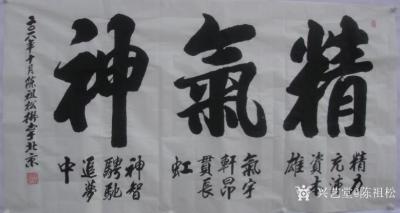 精氣神
精力
充沛
资志
雄
氣宇
軒昂
貫長
虹
神智
騁馳
追夢
中
二〇一八年十月陈祖松撰书于北京
兴艺堂@陈祖松